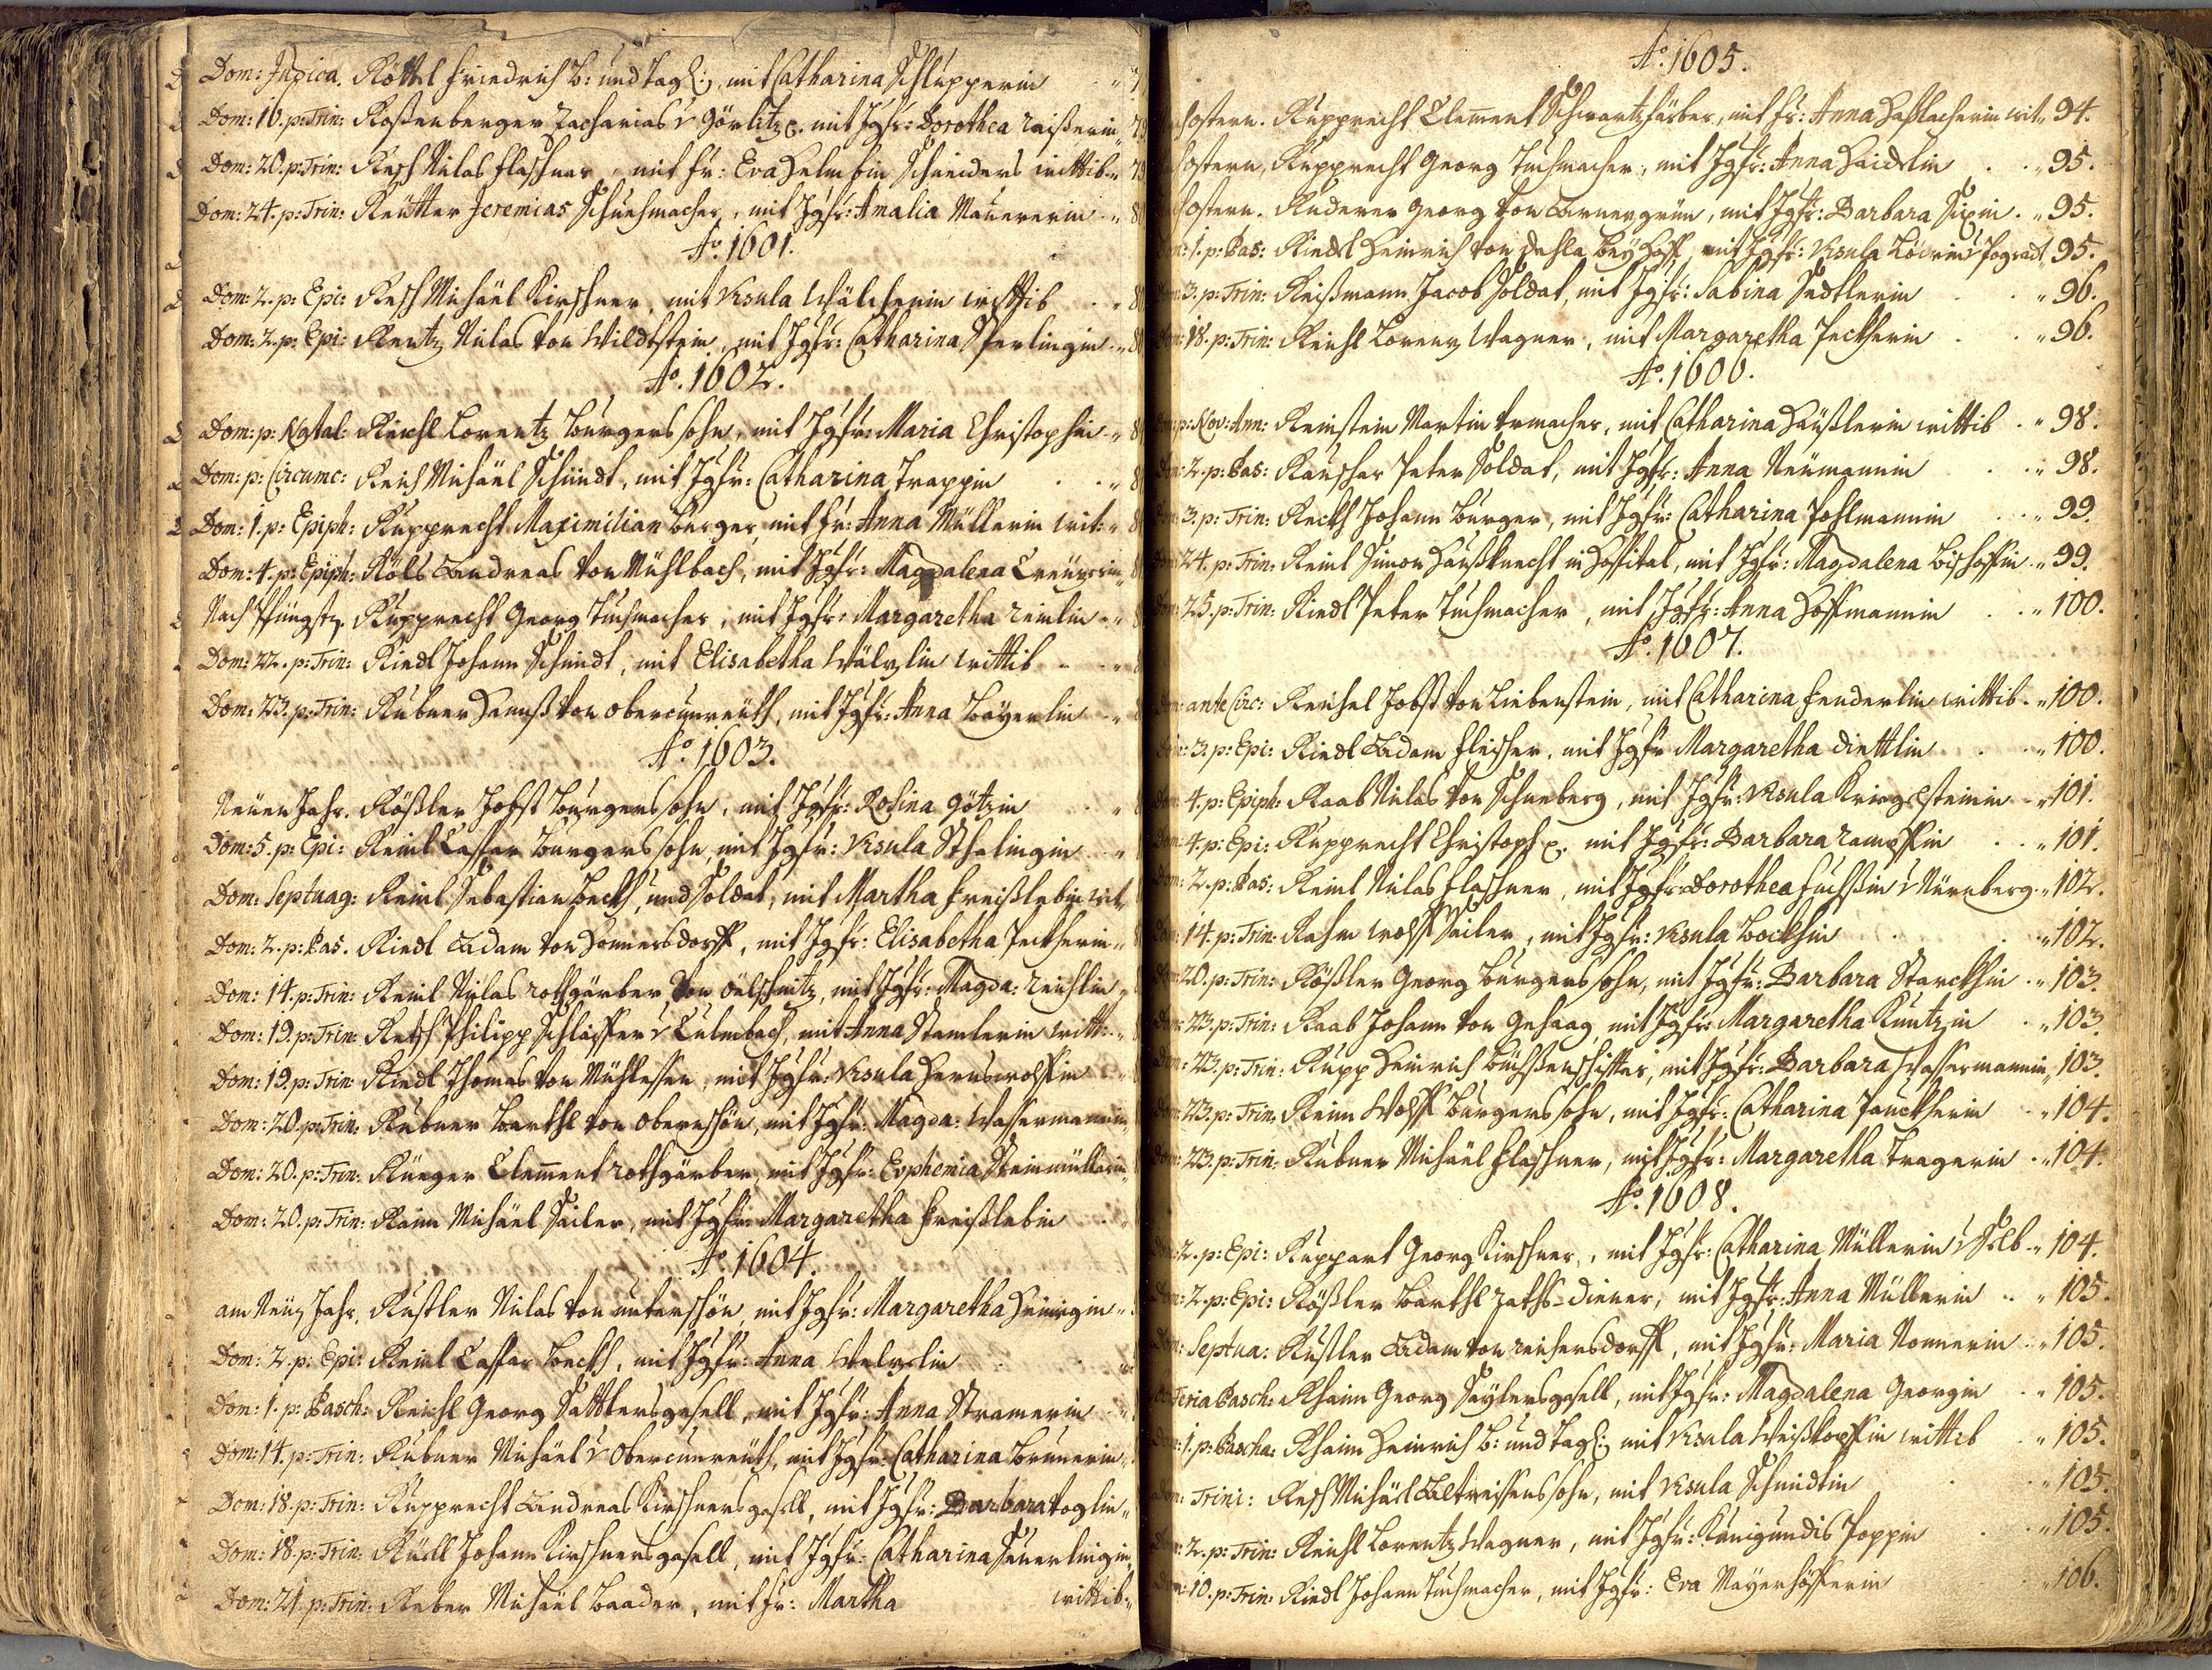 Dom: Judica. Röttel Friedrich B: und Tagl:, mit Catharina Schlupperin „ 7
Dom: 16. p: Trin: Roßenberger Zacharias v Görlitz p. mit Jgfr: Dorothea Zaißerin 7
Dom: 20. p: Trin: Resch Niclas Flaschner, mit Fr: Eva Helmßin Schneiders wittib „ 7
Dom: 24. p: Trin: Reütter Jeremias Schuhmacher, mit Jgfr: Amalia Maurerin „ 8
Ao. 1601.
Dom: 2. p: Epi: Resch Michäel Kirschner, mit Vrsula Wälcherin wittib „ 8
Dom: 2. p: Epi: Rentz Niclas von Wildtstein, mit Jgfr: Catharina Sperlingin „ 8
Ao. 1602.
Dom: p: Natal: Reichl Lorentz Burgerssohn, mit Jgfr: Maria Christophin „ 8
Dom: p: Circumc: Reich Michäel Schmidt, mit Jgfr: Catharina Trappin „ 8
Dom: 1. p: Epiph: Rupprecht Maximilian Burger, mit Fr: Anna Müllerin wit: „ 8
Dom: 4. p: Epiph: Röls Andreas von Mühlbach, mit Jgfr: Magdalena 8
Nach Pfingsten. Rupprecht Georg Tuchmacher, mit Jgfr: Margaretha Reinlin „ 8
Dom: 22. p: Trin: Riedl Johann Schmidt, mit Elisabetha Wälzlin wittib „
Dom: 23. p: Trin: Rubner Hannß von obercunreüth, mit Jgfr: Anna Bäyerlin „
Ao. 1603.
Neuen Jahr. Rößler Jobst Burgerssohn, mit Jgfr: Rosina Götzin „
Dom: 5. p: Epi: Reinl Caspar Burgerssohn, mit Jgfr: Vrsula Schelingin „
Dom: Septuag: Reinl Sebastian Beckh, und Soldat, mit Martha Freißlebin wit
Dom: 2. p: Pas. Riedl Adam von Honnersdorff, mit Jgfr: Elisabetha Peckherin „
Dom: 14. p: Trin: Reinl Niclas rothgärber von Oelschnitz, mit Jgfr: Magda: Reichlin „
Dom: 19. p: Trin: Resch Philipp Schlosser v Culmbach, mit Anna Stamlerin witt: „
Dom: 19. p: Trin: Riedl Thomas von Mühlessen, mit Jgfr: Vrsula Hernwolffin „
Dom: 20. p: Trin: Rubner Barthl von oberschön, mit Jgfr: Magda: Wassermannin
Dom: 20. p: Trin: Rüeger Clement rothgärber, mit Jgfr: Evphemia Steinmüllerin
Dom: 20. p: Trin: Raim Michäel Sailer, mit Jgfr: Margaretha Freißlebin „
Ao. 1604.
am Neüen Jahr. Rustler Niclas von unterschön, mit Jgfr: Margaretha Heinigin „
Dom: 2. p: Epi: Reinl Caspar Beckh, mit Jgfr: Anna Welzlin „
Dom: 1. p: Pasch: Reichl Georg Sattlersgesell, mit Jgfr: Anna Stramerin „
Dom: 14. p: Trin: Rubner Michäel v Obercunreüth, mit Jgfr: Catharina Brunerin „
Dom: 18. p: Trin: Rupprecht Andreas Kirschnersgesell, mit Jgfr: Barbara Voglin „
Dom: 18. p: Trin: Rüdl Johann Kirschnersgesell, mit Jgfr: Catharina Seuerlingin
Dom: 21. p: Trin: Reber Michäel Baader, mit Fr: Martha wittib „
Ao. 1605.
ostern. Rupprecht Clement Schwartzfärber, mit Fr: Anna Haßlacherin wit „ 94.
ostern, Rupprecht Georg Tuchmacher, mit Jgfr: Anna Haidlin „ 95.
ostern. Ruderer Georg von Dornergrün, mit Jgfr: Barbara Sixin „ 95.
Dom: 1. p: Pas: Riedl Heinrich von Dehla bey Hoff, mit Jgfr: Vrsula v Pograt „ 95.
Dom: 3. p: Trin: Reißmann Jacob Soldat, mit Jgfr: Sabina Sadtlerin „ 96.
Dom: 18. p: Trin: Reichl Lorenz Wagner, mit Margaretha Peckherin „ 96.
Ao. 1606.
Dom: p: Nov: Ann: Reinstein Martin Vrmacher, mit Catharina Häußlerin wittib „ 98.
Dom: 2. p: Pas: Rauschar Peter Soldat, mit Jgfr: Anna Neumannin „ 98.
Dom: 3. p: Trin: Reckh Johann Burger, mit Jgfr: Catharina Pohlmannin „ 99.
Dom: 24. p: Trin: Reinl Simon Haußknecht in Hospital, mit Jgfr: Magdalena Bischoffin „ 99.
Dom: 25. p: Trin: Riedl Peter Tuchmacher, mit Jgfr: Anna Hoffmannin „ 100.
Ao. 1607.
Dom: ante Circ: Reichel Jobst von Liebenstein, mit Catharina Fenderlin wittib „ 100.
Dom: 3. p: Epi: Riedl Adam Fleischer, mit Jgfr Margaretha Diettlin „ 100.
Dom: 4. p: Epiph: Raab Niclas von Schneberg, mit Jgfr: Vrsula Kriegelsteinin „ 101.
Dom: 4. p: Epi: Rupprecht Christoph p. mit Jgfr: Barbara Rampffin „ 101.
Dom: 2. p: Pas: Reinl Niclas Flaschner, mit Jgfr: Dorothea Fuchßin v Nürnberg „ 102.
Dom: 14. p: Trin: Rahm Wolff Sailer, mit Jgfr: Vrsula Böckhin „ 102.
Dom: 20. p: Trin: Rößler Georg Burgerssohn, mit Jgfr: Barbara Starckhin „ 103.
Dom: 23. p: Trin: Raab Johann von Gehaag, mit Jgfr: Margaretha Kuntzin „ 103.
Dom: 23. p: Trin: Rupp Heinrich Büchßenschiffter, mit Jgfr: Barbara Wassermannin „ 103.
Dom: 23. p: Trin: Reim Wolff Burgerssohn, mit Jgfr: Catharina Pauckherin „ 104.
Dom: 23. p: Trin: Rubner Michäel Flaschner, mit Jgfr: Margaretha Tragerin „ 104.
Ao. 1608.
Dom: 2. p: Epi: Ruppart Georg Kirschner, mit Jgfr: Catharina Müllerin v Selb „ 104.
Dom: 2. p: Epi: Rößler Barthl Raths-diener, mit Jgfr: Anna Müllerin „ 105.
Dom: Septua: Rustler Adam von Reichersdorff, mit Jgfr: Maria Nonnerin „ 105.
Feria Pasch: Rhaim Georg Saylersgesell, mit Jgfr: Magdalena Georgin „ 105.
Dom: 1. p: Pascha: Rhaim Heinrich B: und Tagl: mit Vrsula Weißkopffin wittib „ 105.
Dom: Trini: Resch Michäel Altreissenssohn, mit Vrsula Schmidtin „ 105.
Dom: 2. p: Trin: Reichl Lorentz Wagner, mit Jgfr: Kunigundis Poppin „ 105.
Dom: 10. p: Trin: Riedl Johann Tuchmacher, mit Jgfr: Eva Mayerhöfferin „ 106.